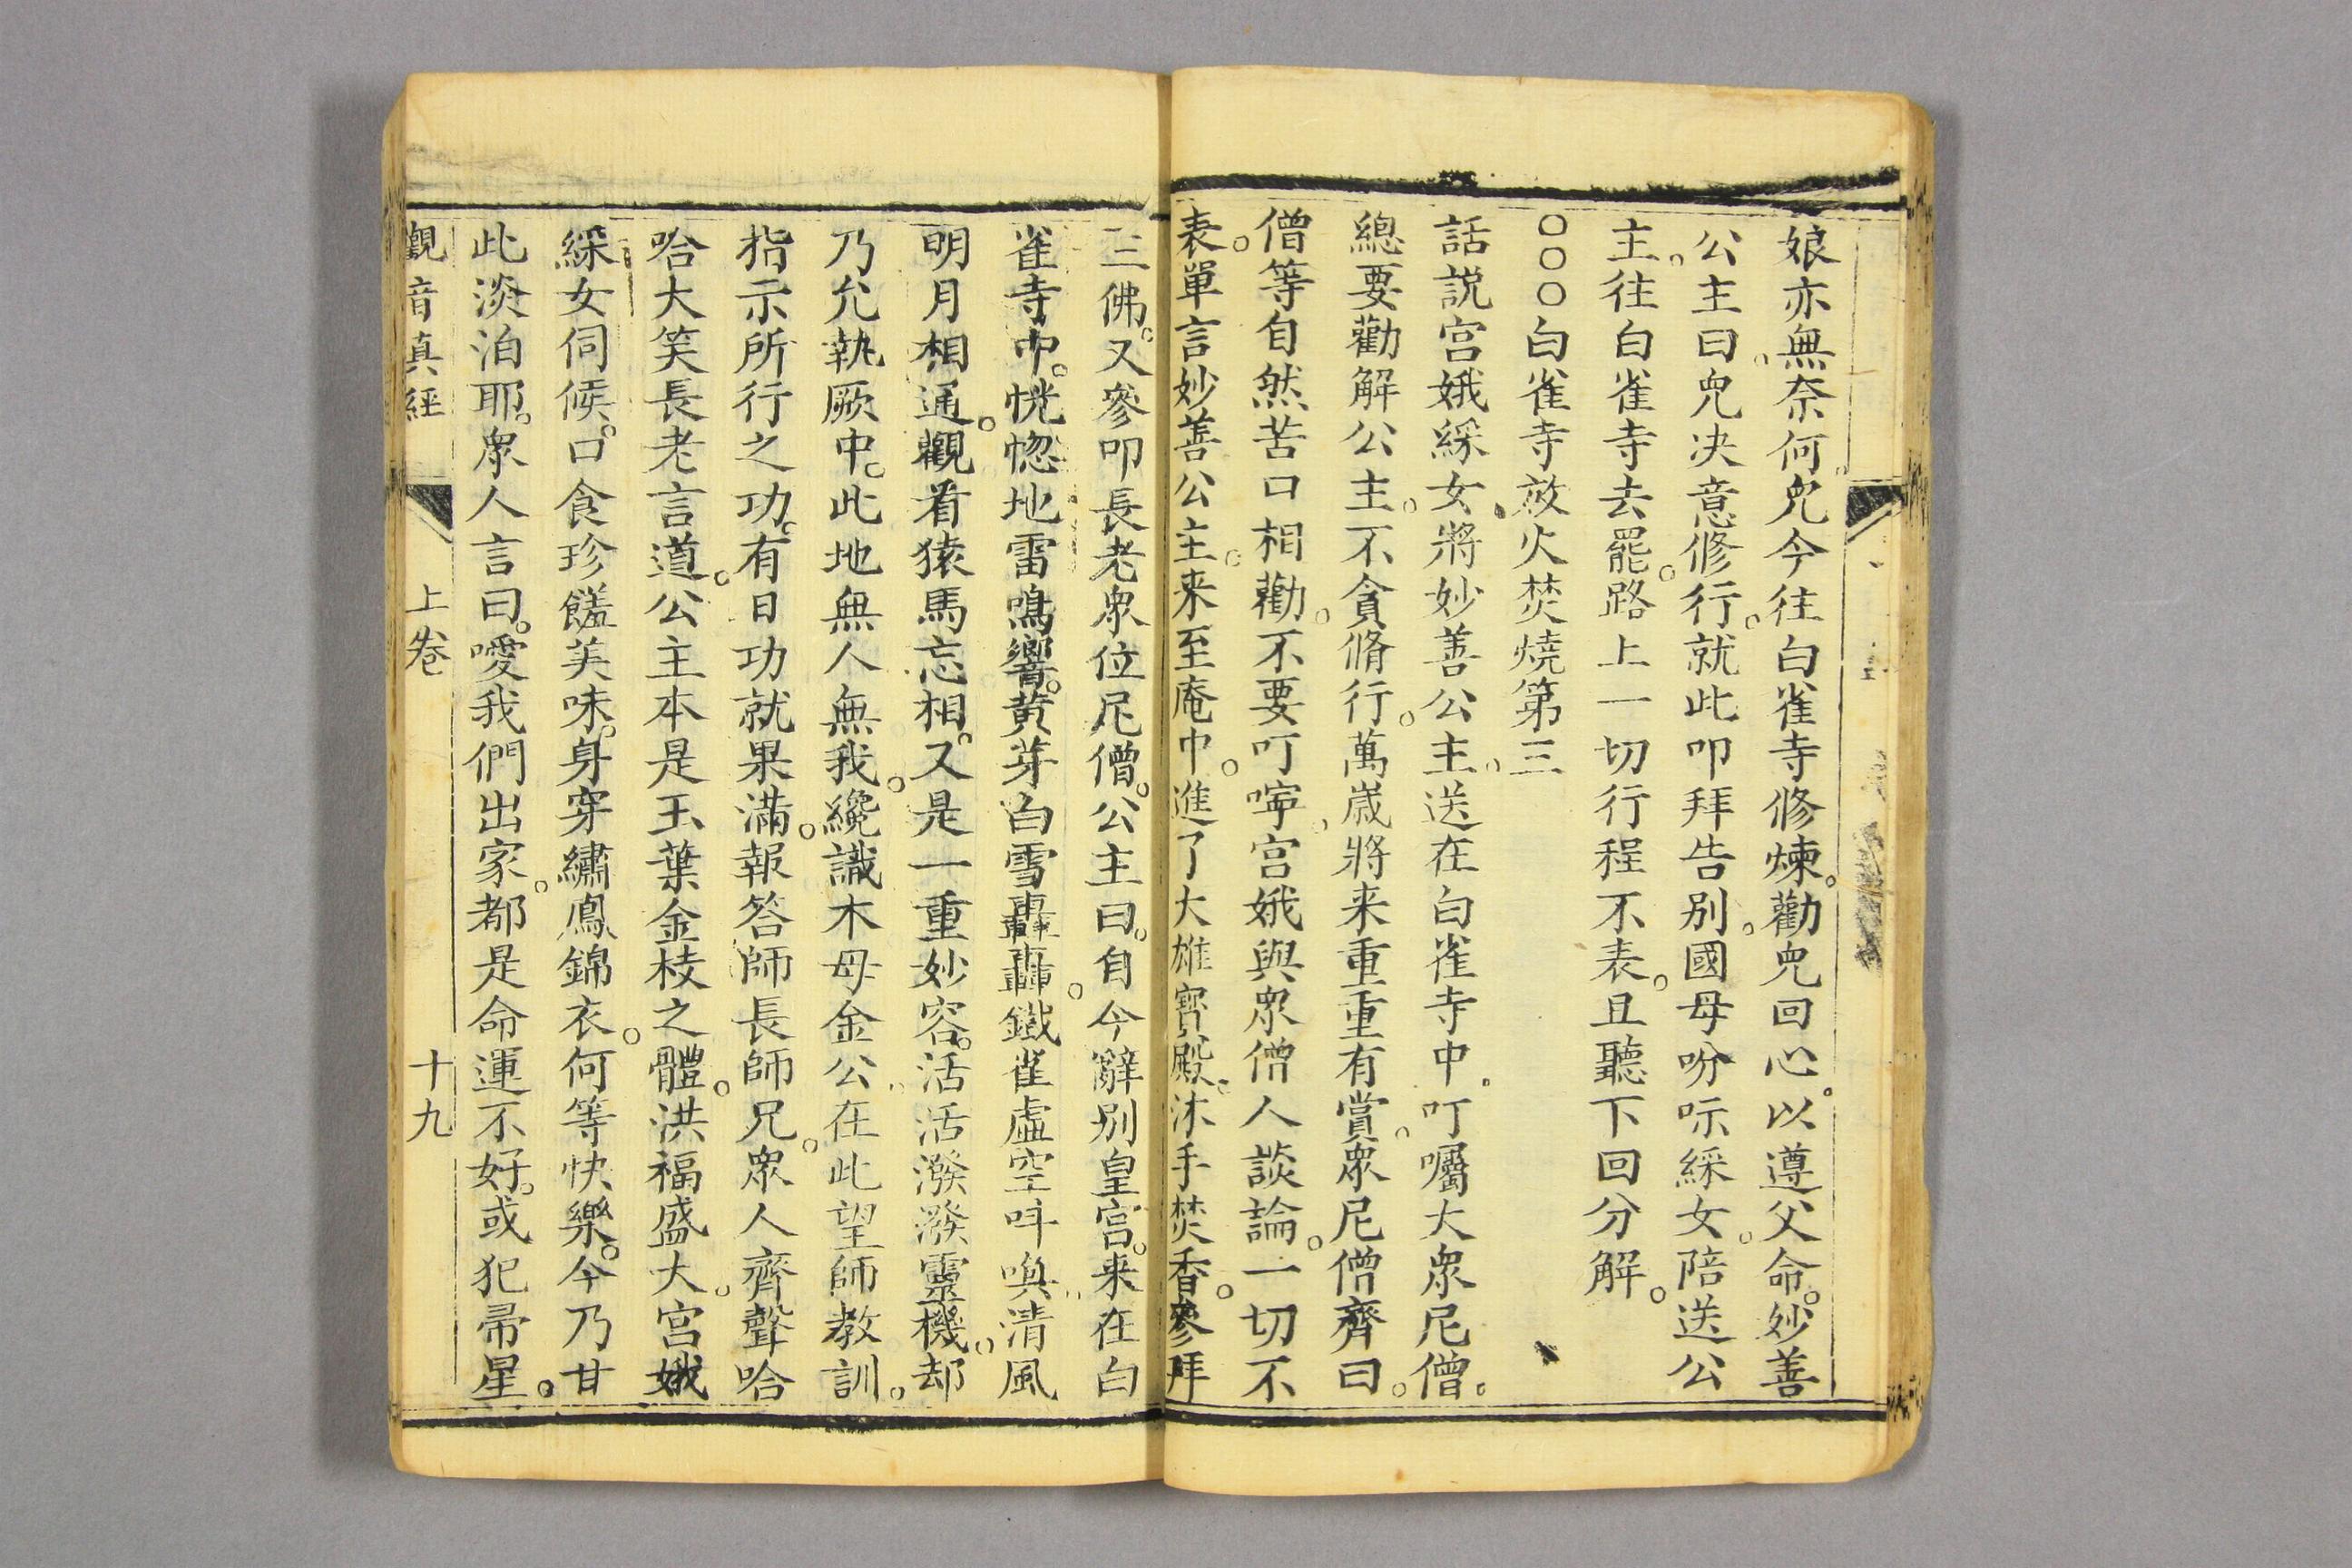 娘亦無奈何。兒今往白雀寺修煉。勸兒回心。以遵父命。妙善
公主曰。兒决意修行。就此叩拜告別。國母吩咶綵女。陪送公
主。往白雀寺去罷。路上一切行程不表。且聽下回分解。
○○○白雀寺放火焚燒第三
話説宮娥綵女。將妙善公主。送在白雀寺中。叮囑大衆尼僧。
總要勸解公主。不貪脩行。萬歲將来重重有賞。衆尼僧齊曰。
僧等自然苦口相勸。不要叮嚀。宮娥與衆僧人談論。一切不
表。單言妙善公主。来至庵中。進了大雄寶殿。沐手焚香。參拜
三佛。又參叩長老衆位尼僧。公主曰。自今辭别皇宮。来在白
雀寺中。恍惚地雷鳴響。黄芽白雪轟轟。鐵雀虛空呌喚。清風
明月相通。觀看猿馬忘相。又是一重妙容。活活潑潑靈機。却
乃允執厥中。此地無人無我。纔識木母金公。在此望師教訓。
指示所行之功。有日功就果滿。報答師長師兄。衆人齊聲哈
哈大笑長老言道。公主本是玉葉金枝之體。洪福盛大。宮娥
綵女伺候。口食珍饈美味。身穿繡鳳錦衣。何等快樂。今乃甘
此淡泊耶。衆人言曰。噯我們出家。都是命運不好。或犯帚星。
觀音真經 上卷 十九